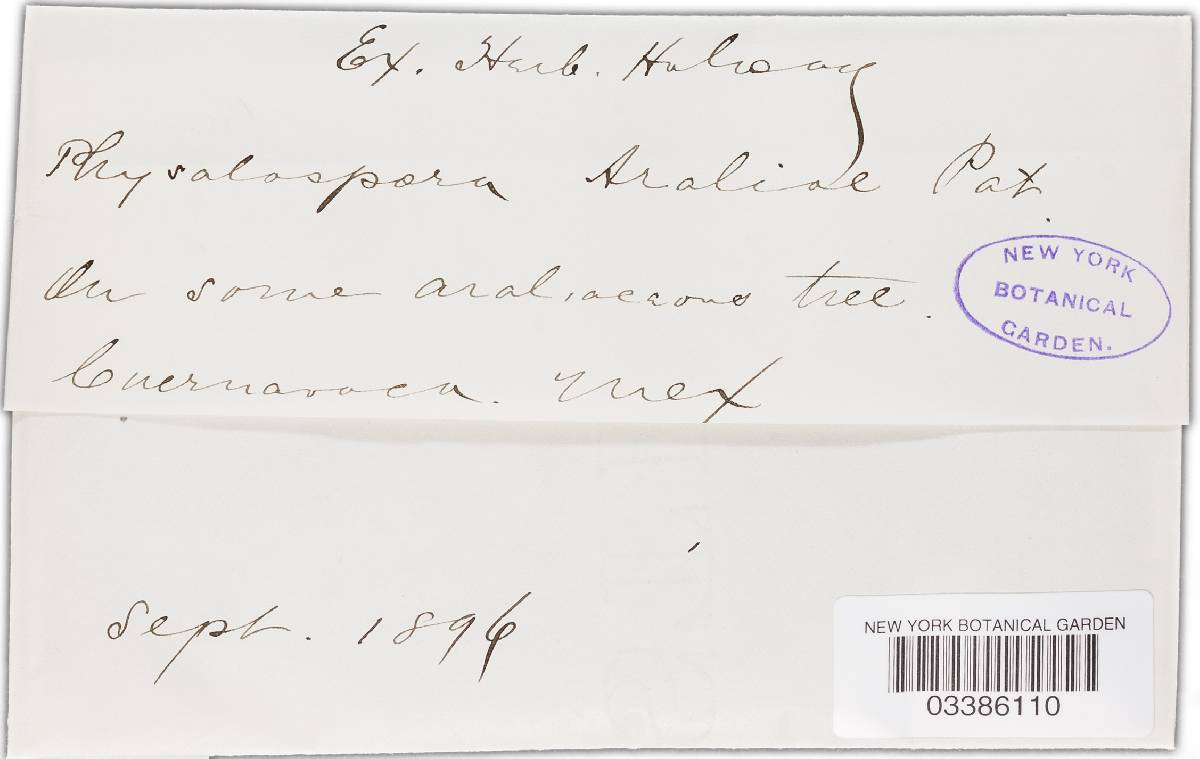 Ex. Herb. Holway
Physalospora Araliae Pat.
On some araliaceous tree.
Cuernavaca. Mex
NEW YORK
BOTANICAL
GARDEN.
Sept. 1896
NEW YORK BOTANICAL GARDEN
03386110